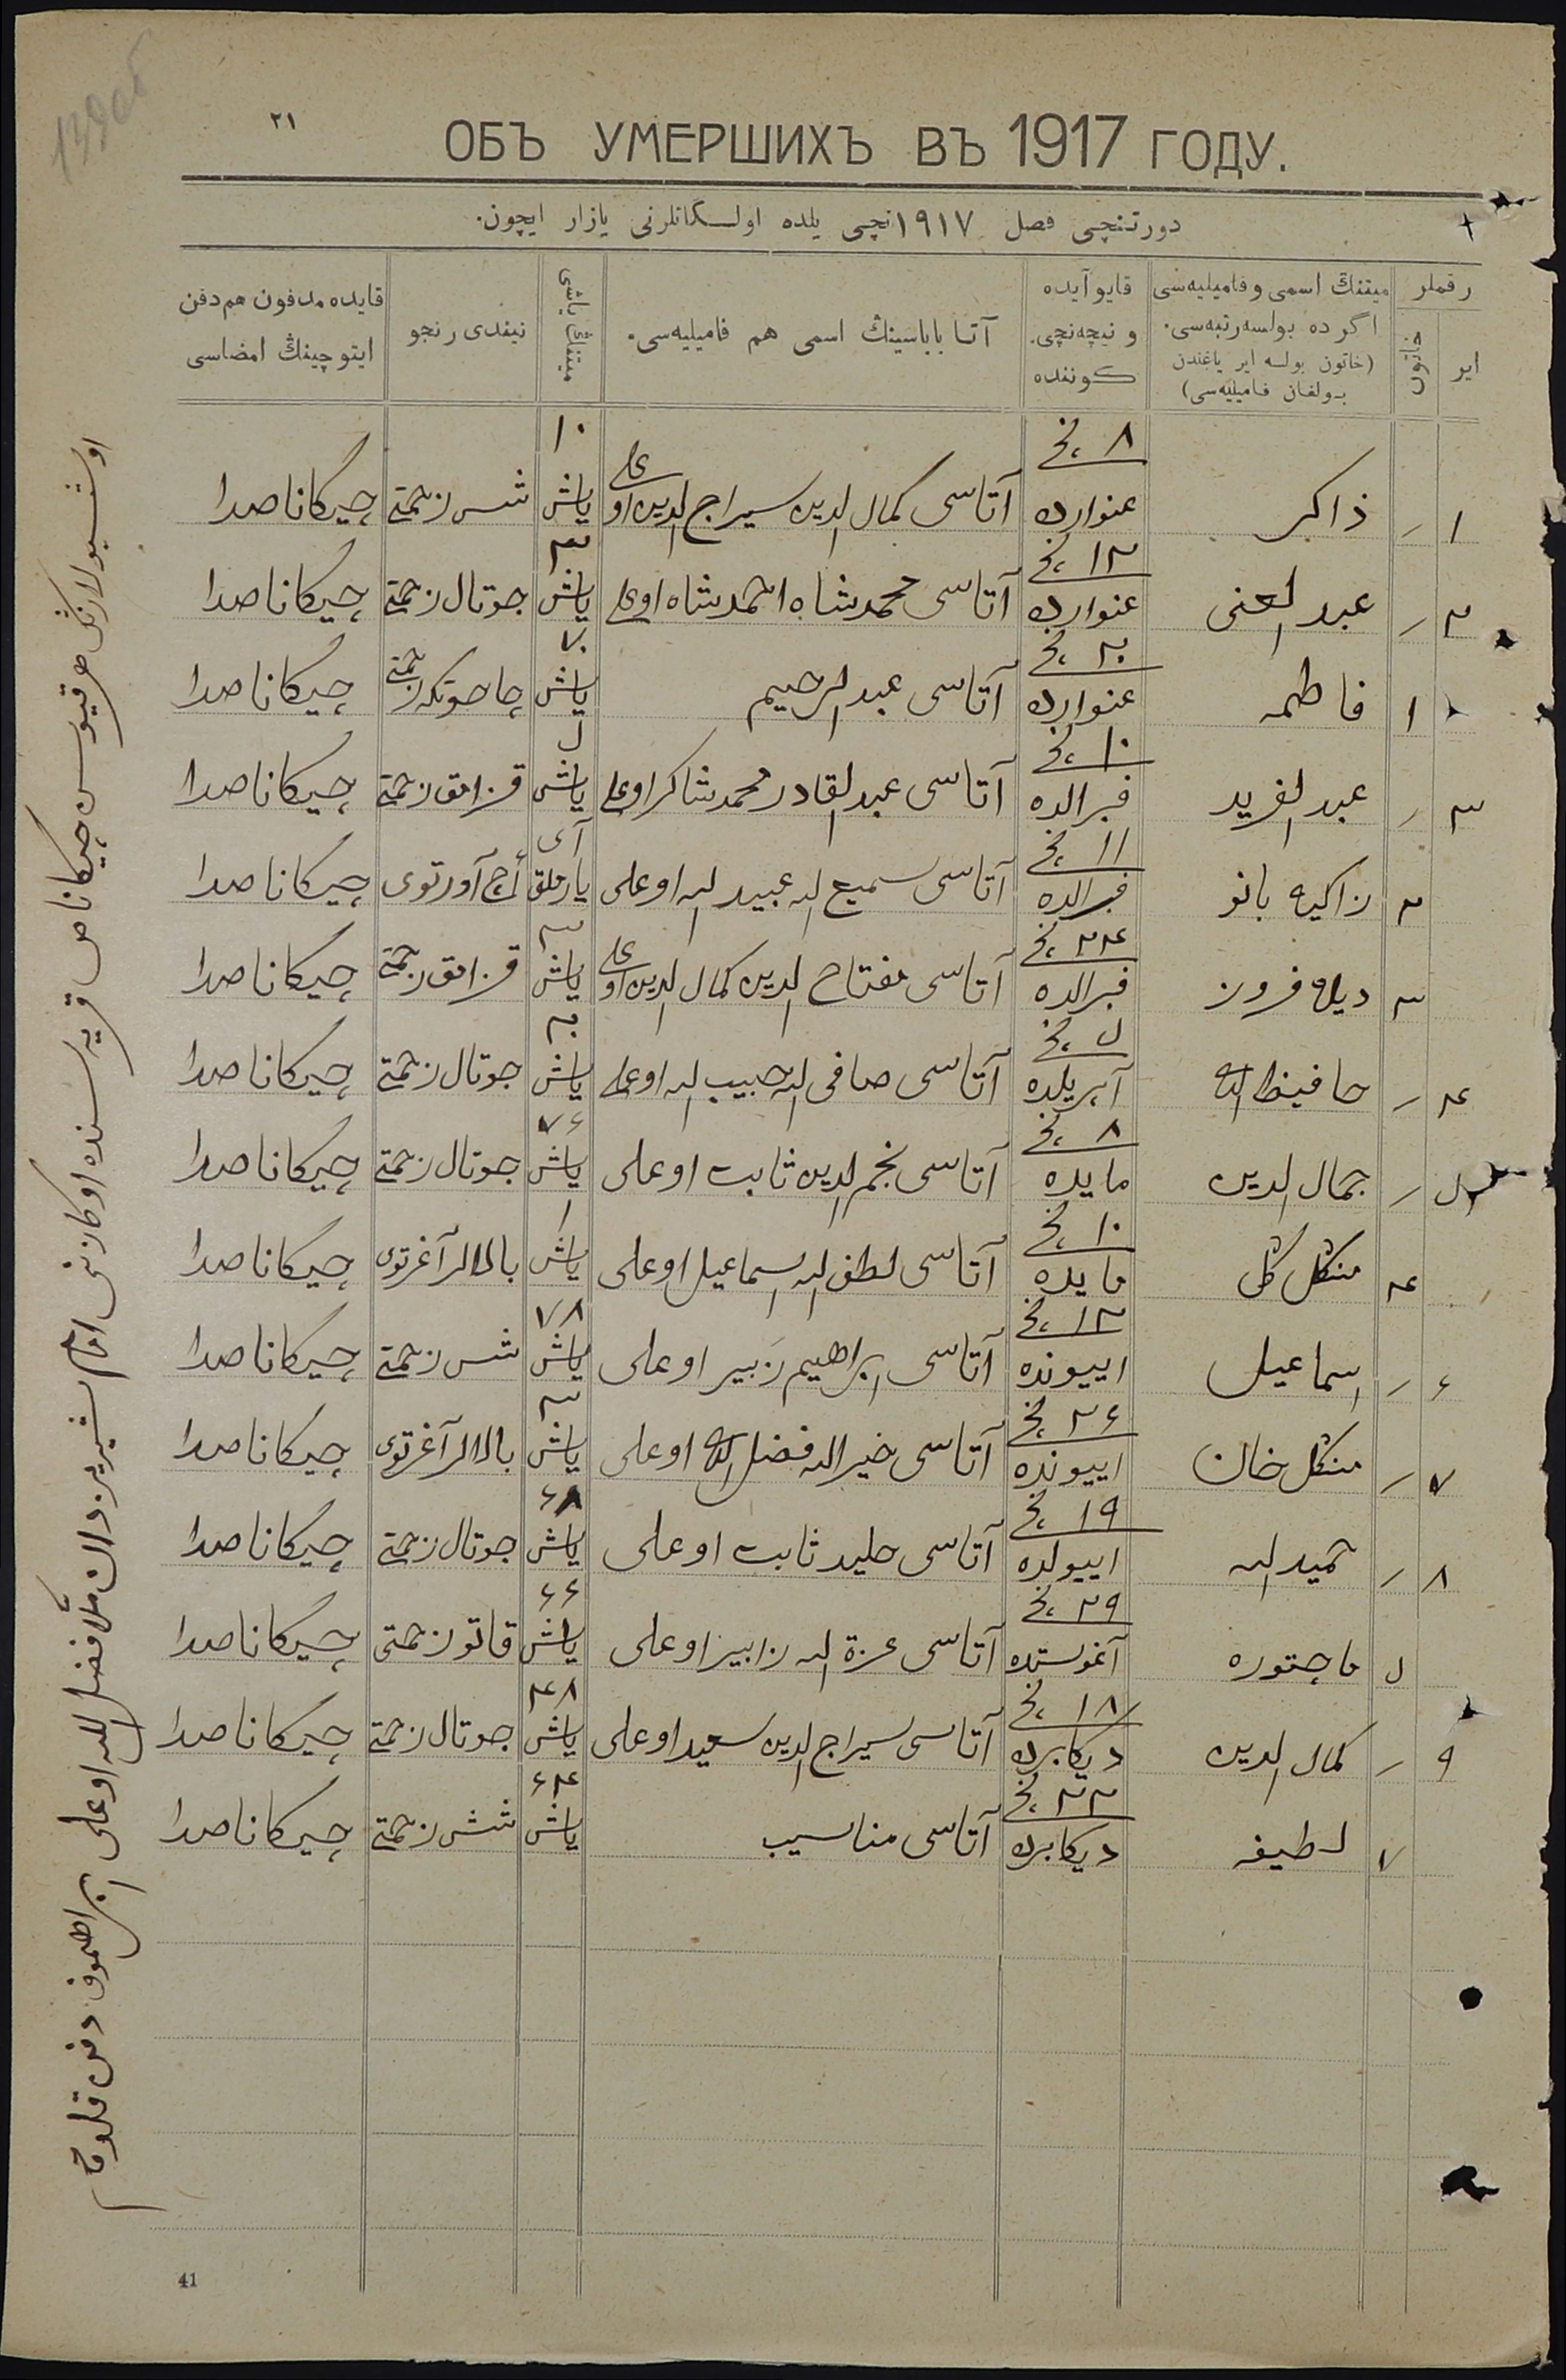 ٢١
ОБЪ УМЕРШИХЪ ВЪ 1917 ГОДУ.
دورتنچی فصل ١٩١٧نچی یلده اولسگانلرنی یازار ایچون.
رقملر
ایر
خاتون
میتنڭ اسمی و فامیلیه‌سی
اگر ده بولسه رتبه‌سی.
(خاتون بولسه ایر یاغندن
بولغان فامیلیه‌سی)
قایو آیده
و نیچه‌نچی.
کوننده
آتا باباسینڭ اسمی هم فامیلیه‌سی.
میتنڭ یاشی
نیندی رنجو
قایده مدفون هم دفن
ایتوچینڭ امضاسی
١ ذاکر ٨ نچی عنوارده آتاسی کمال الدین سیراج الدین اوغلی ١٠ یاش شس زحمتی چیکاناصدا
٢ عبد الغنی ١٢ نچی عنوارده آتاسی محمدشاه احمدشاه اوغلی ٣ یاش جوتال زحمتی چیکاناصدا
١ فاطمه ٢٠ نچی عنوارده آتاسی عبد الرحیم ٧٠ یاش چاحوتکه زحمتی چیکاناصدا
٣ عبد الفرید ١٠ نچی فبرالده آتاسی عبد القادر محمدشاکر اوغلی ٥ یاش قزامق زحمتی چیکاناصدا
٢ زاکیه بانو ١١ نچی فبرالده آتاسی سمیع الله عبید الله اوغلی آی یارملق اچ آورتوی چیکاناصدا
٣ دیله فروز ٢٤ نچی فبرالده آتاسی مفتاح الدین کمال الدین اوغلی ٣ یاش قزامق زحمتی چیکاناصدا
٤ حافیظ الله ٥ نچی آپریلده آتاسی صافی الله حبیب الله اوغلی ٢٠ یاش جوتال زحمتی چیکاناصدا
٥ جمال الدین ٨ نچی مایده آتاسی نجم الدین ثابت اوغلی ٧٦ یاش جوتال زحمتی چیکاناصدا
٤ منکل کل ١٠ نچی مایده آتاسی لطف الله اسماعیل اوغلی ١ یاش بالالر آغرتوی چیکاناصدا
٦ اسماعیل ١٢ نچی اییونده آتاسی ابراهیم زبیر اوغلی ٧٨ یاش شس زحمتی چیکاناصدا
٧ منکل خان ٢٦ نچی اییونده آتاسی خیر الله فضل الله اوغلی ٣ یاش بالالر آغرتوی چیکاناصدا
٨ حمید الله ١٩ نچی اییولده آتاسی حلید ثابت اوغلی ٦٨ یاش جوتال زحمتی چیکاناصدا
٥ ماحتوره ٢٩ نچی آغوستده آتاسی عزة الله زابیر اوغلی ٦٦ یاش قاتو زحمتی چیکاناصدا
٩ کمال الدین ١٨ نچی دیکابرده آتاسی سیراج الدین سعید اوغلی ٤٨ یاش جوتال زحمتی چیکاناصدا
٧ لطیفه ٢٢ نچی دیکابرده آتاسی مناسیب ٦٤ یاش شش زحمتی چیکاناصدا
اوشبولارنڭ هر قیوسن چیکاناص قریه سنده اوکازنی امام شیریزدان ملا فضل الله اوغلی ابراهیموف دفن قلدم
41